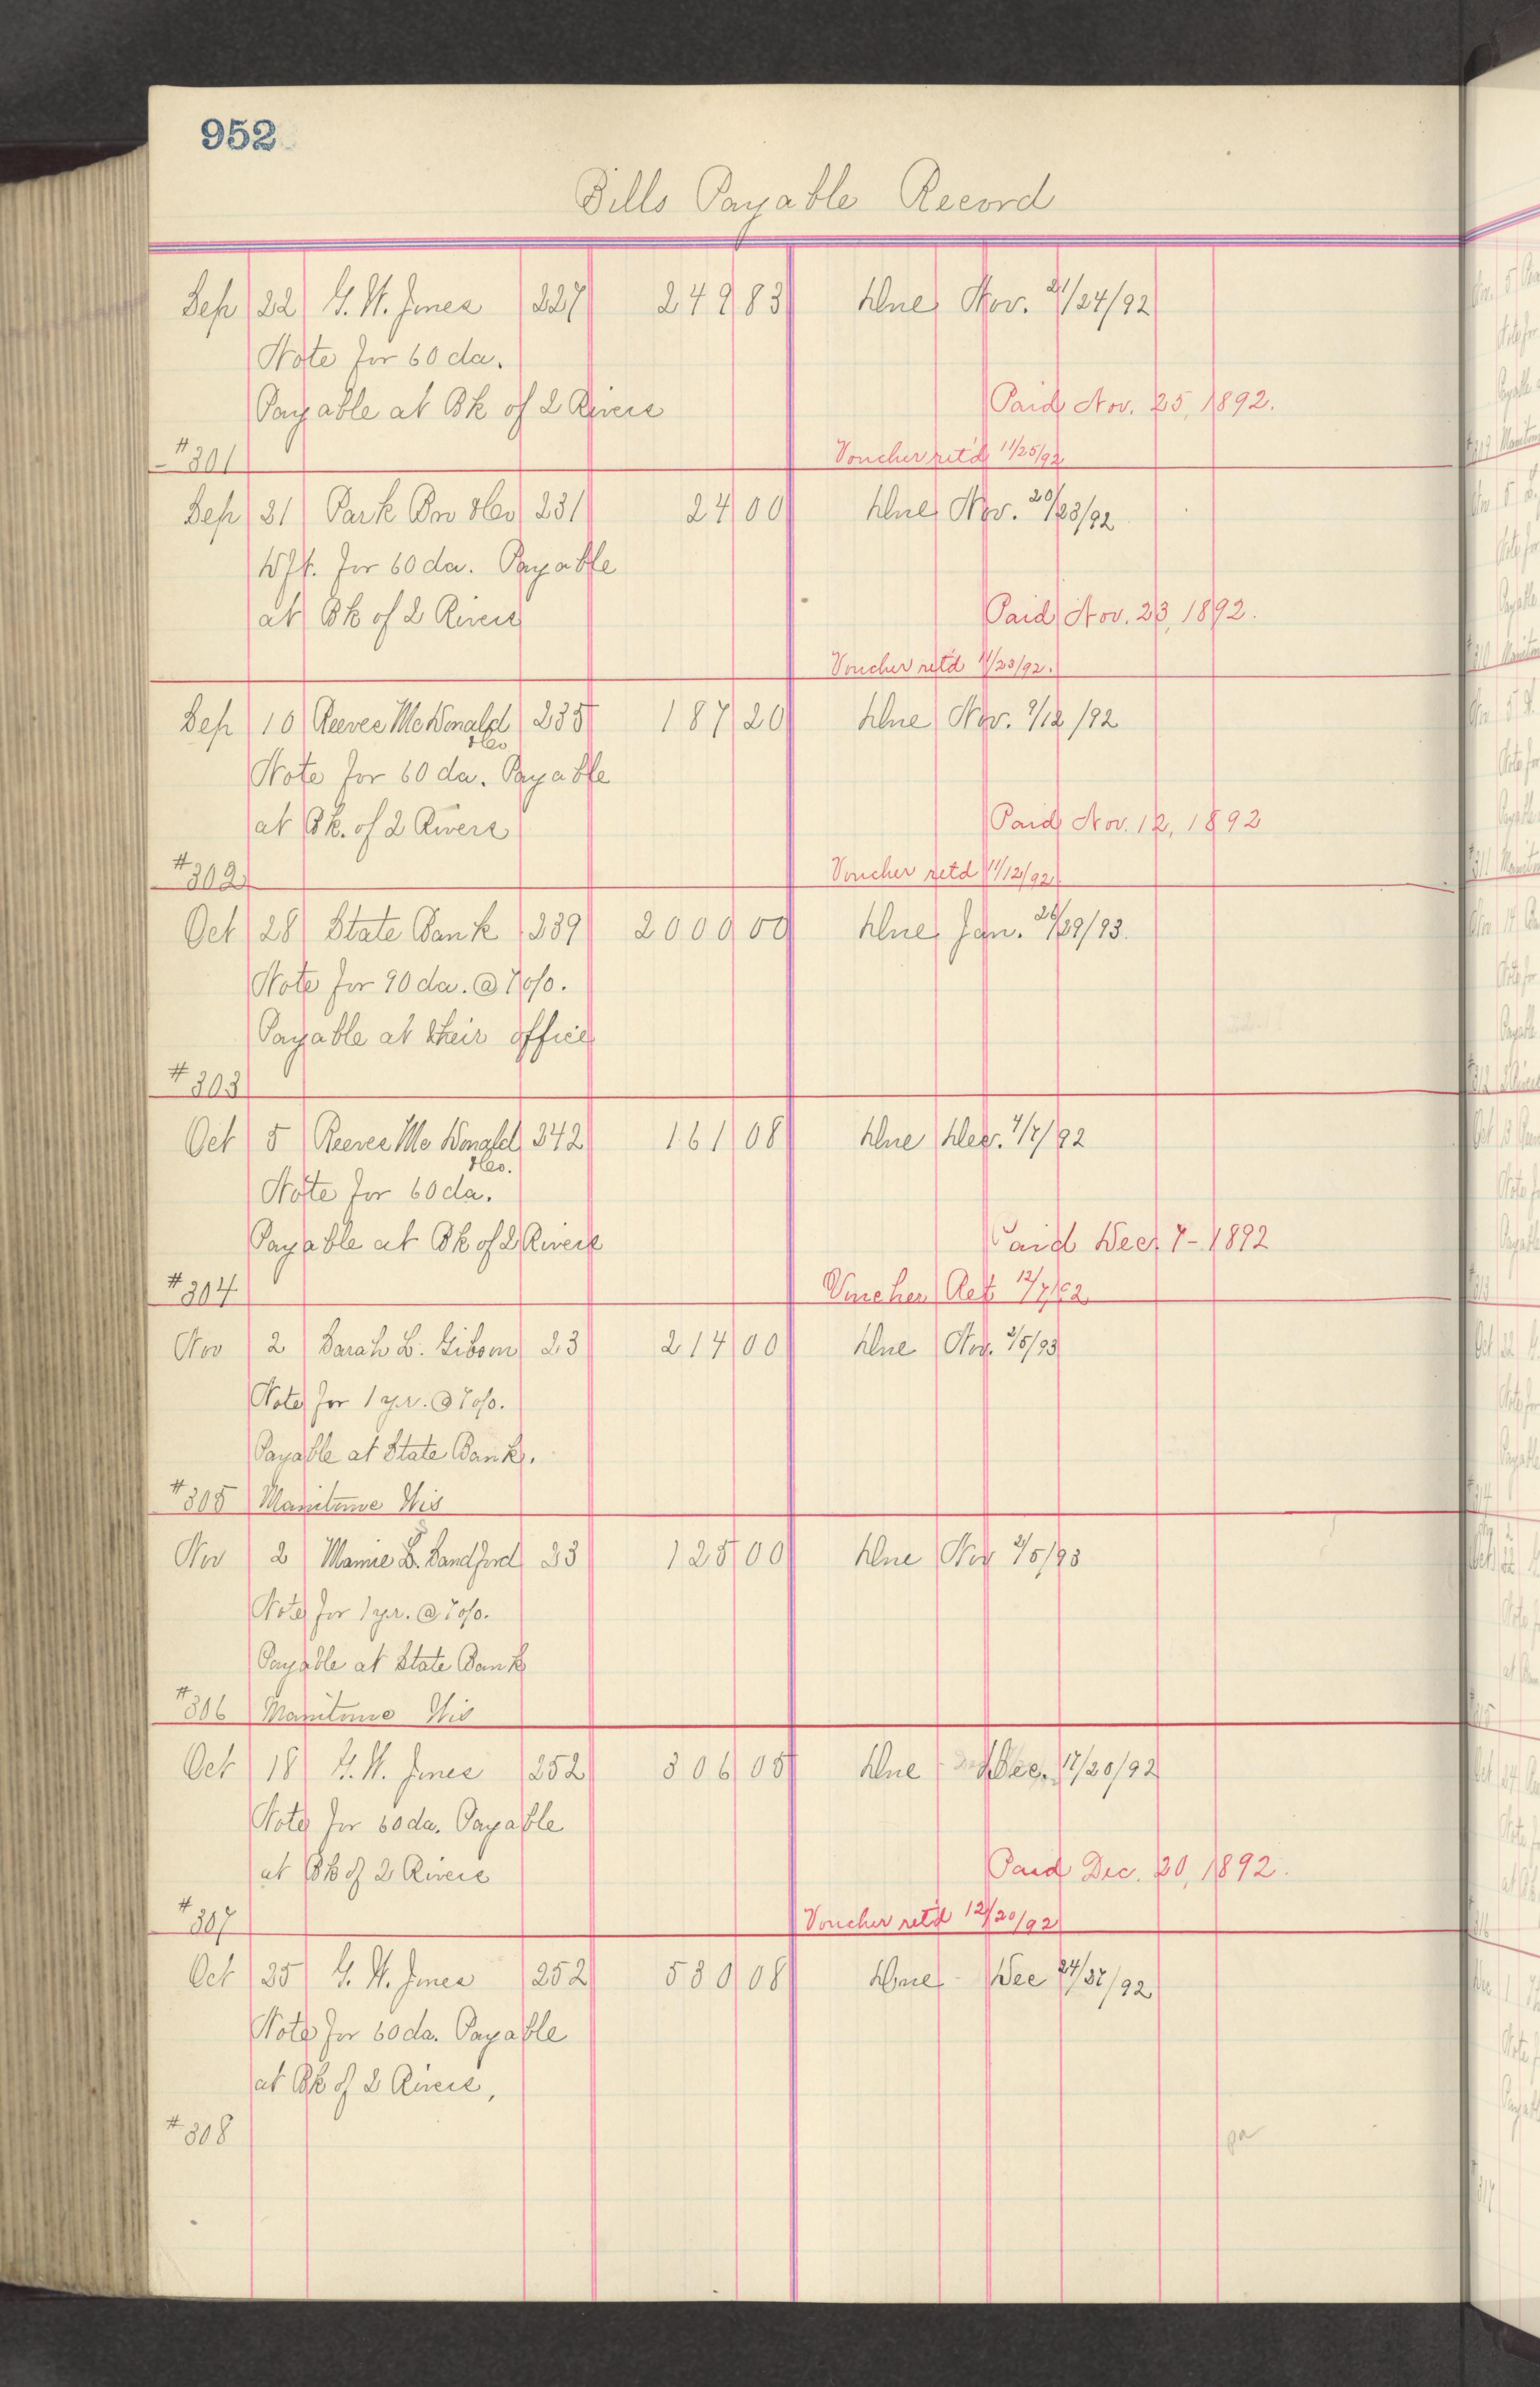 952
Bills Payable Record
Sep 22 G. W. Jones 227 249 83 Due Nov. 21/24/92
Note for 60 da.
Payable at Bk of 2 Rivers Paid Nov. 25, 1892.
#301 Voucher ret'd 11/25/92
Sep 21 Park Bro & Co 231 24 00 Due Nov. 20/23/92
Dft. for 60 da. Payable
at Bk of 2 Rivers Paid Nov. 23, 1892.
Voucher ret'd 11/23/92.
Sep 10 Reeves McDonald & Co 235 187 20 Due Nov. 9/12/92
Note for 60 da. Payable
at Bk. of 2 Rivers Paid Nov. 12, 1892
#302 Voucher retd 11/12/92
Oct 28 State Bank 239 2000 00 Due Jan. 26/29/93.
Note for 90 da. @ 7 o/o.
Payable at their office
#303
Oct 5 Reeves Mc Donald & Co. 242 161 08 Due Dec. 4/7/92
Note for 60 da.
Payable at Bk of 2 Rivers Paid Dec 7 - 1892
#304 Voucher Ret 12/7/92
Nov 2 Sarah L. Gibson 23 214 00 Due Nov. 2/5/93
Note for 1 yr. @ 7 o/o.
Payable at State Bank.
#305 Manitowoc Wis
Nov 2 Mamie B. Sandford 23 125 00 Due Nov 2/5/93
Note for 1 yr. @ 7 o/o.
Payable at State Bank
#306 Manitowoc Wis
Oct 18 G. W. Jones 252 306 05 Due Dec. 17/20/92
Note for 60 da. Payable
at Bk of 2 Rivers Paid Dec. 20, 1892.
#307 Voucher ret'd 12/20/92
Oct 25 G. W. Jones 252 530 08 Due Dec 24/27/92
Note for 60 da. Payable
at Bk of 2 Rivers,
#308
pa